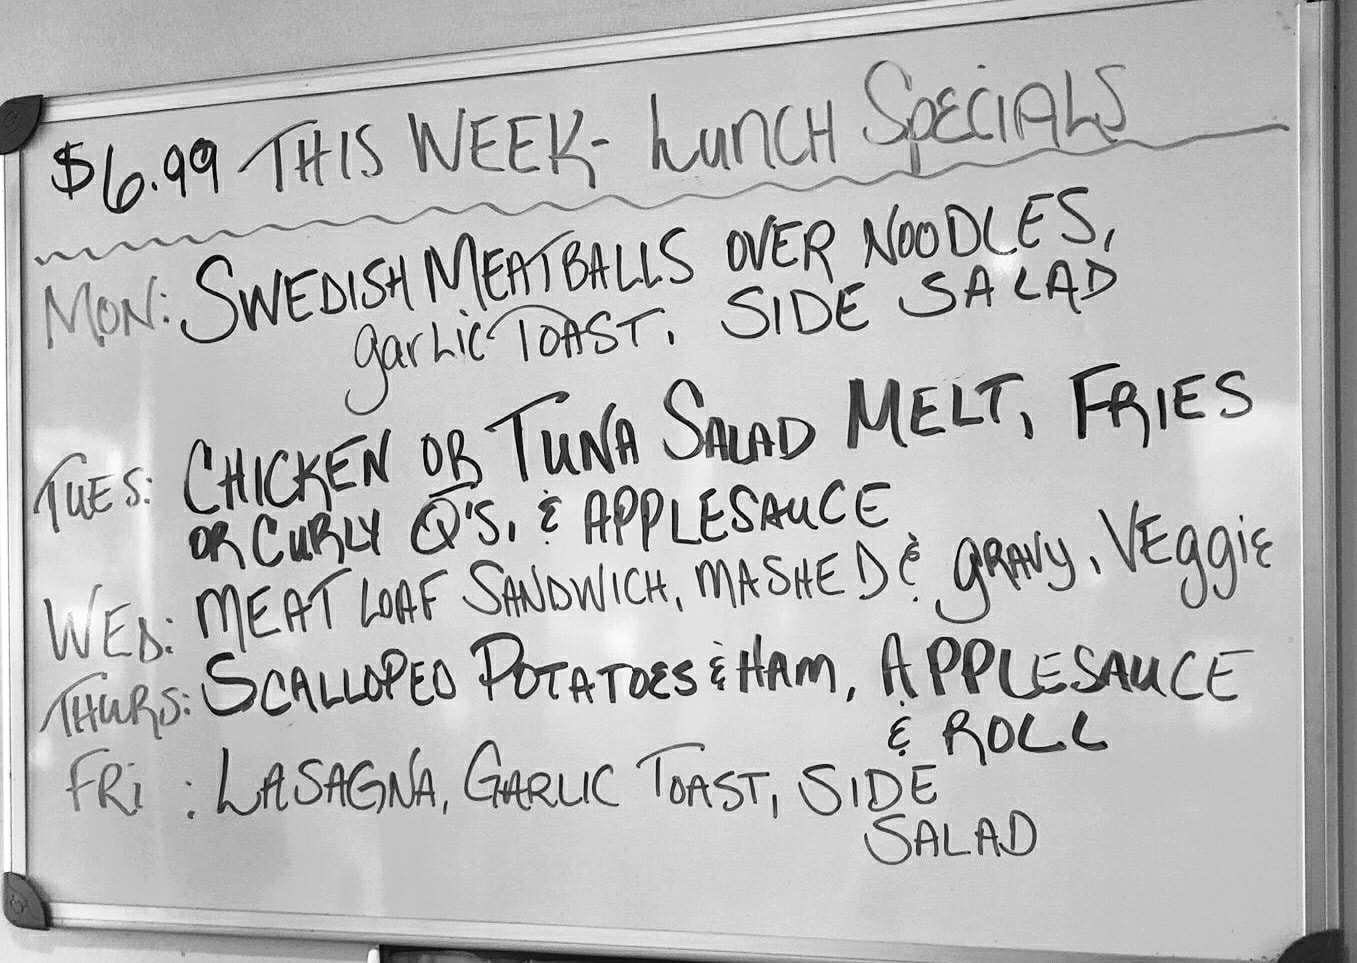 $6.99 THIS WEEK- LUNCH SPECIALS
MON: SWEDISH MEATBALLS OVER NOODLES,
garLic TOAST, SIDE SALAD
TUES: CHICKEN OR TUNA SALAD MELT, FRIES
OR CURLY Q'S, & APPLESAUCE
WED: MEAT LOAF SANDWICH, MASHED & GRAVY, VEggiE
THURS: SCALLOPED POTATOES & HAM, APPLESAUCE
& ROLL
FRi : LASAGNA, GARLIC TOAST, SIDE
SALAD